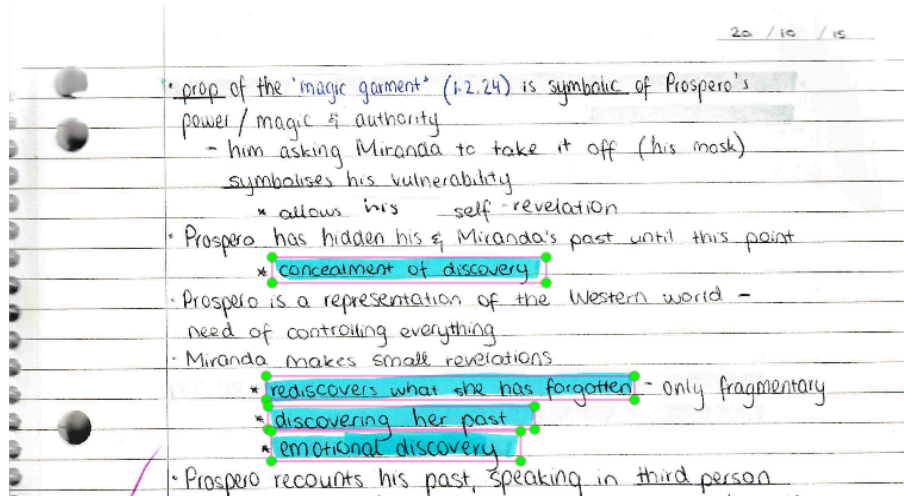 20 / 10 / 15
· prop of the "magic garment" (1.2.24) is symbolic of Prospero's
power / magic & authority
- him asking Miranda to take it off (his mask)
symbolises his vulnerability
* allows his self-revelation
· Prospero has hidden his & Miranda's past until this point
* concealment of discovery
· Prospero is a representation of the Western world -
need of controlling everything
· Miranda makes small revelations
* rediscovers what she has forgotten - only fragmentary
* discovering her past
* emotional discovery
· Prospero recounts his past, speaking in third person